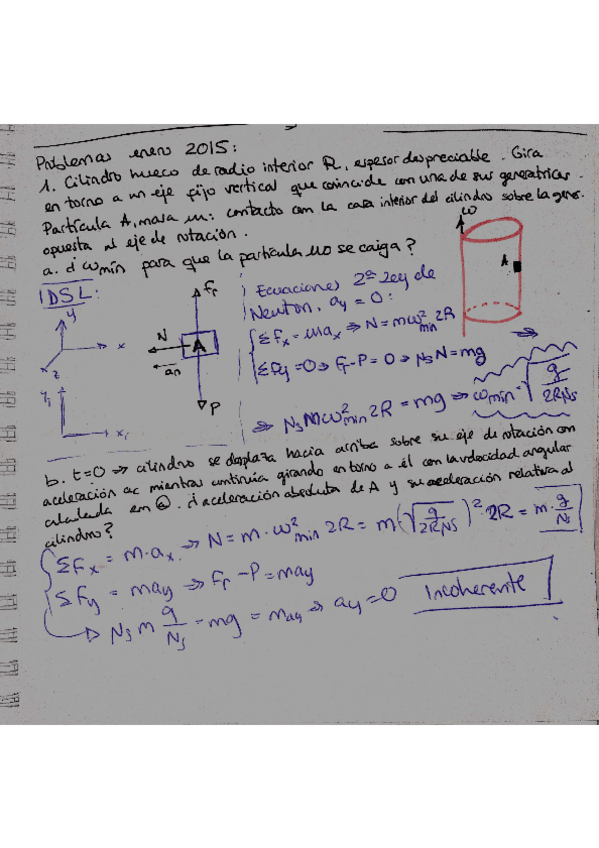 Problemas enero 2015:
1. Cilindro hueco de radio interior R, espesor despreciable. Gira
en torno a un eje fijo vertical que coincide con una de sus generatrices.
Partícula A, masa m: contacto con la cara interior del cilindro sobre la gener.
opuesta al eje de rotación.
a. ¿ωmín para que la partícula no se caiga?
ω
A
DSL:
y
x
z
y₁
x₁
Fr
N
A
an
P
Ecuaciones 2ª Ley de
Newton, ay = 0:
ΣFx = max ⇒ N = mω²min 2R
ΣFy = 0 ⇒ Fr - P = 0 ⇒ Ns N = mg
⇒ Ns mω²min 2R = mg ⇒ ωmin = √(g/2RNs)
b. t=0 ⇒ cilindro se desplaza hacia arriba sobre su eje de rotación con
aceleración ac mientras continúa girando en torno a él con la velocidad angular
calculada en ⓐ. ¿aceleración absoluta de A y su aceleración relativa al
cilindro?
ΣFx = m·ax ⇒ N = m·ω²min 2R = m(√(g/2RNs))²·2R = m·g/Ns
ΣFy = may ⇒ Fr - P = may
Ns m g/Ns - mg = may ⇒ ay = 0 Incoherente